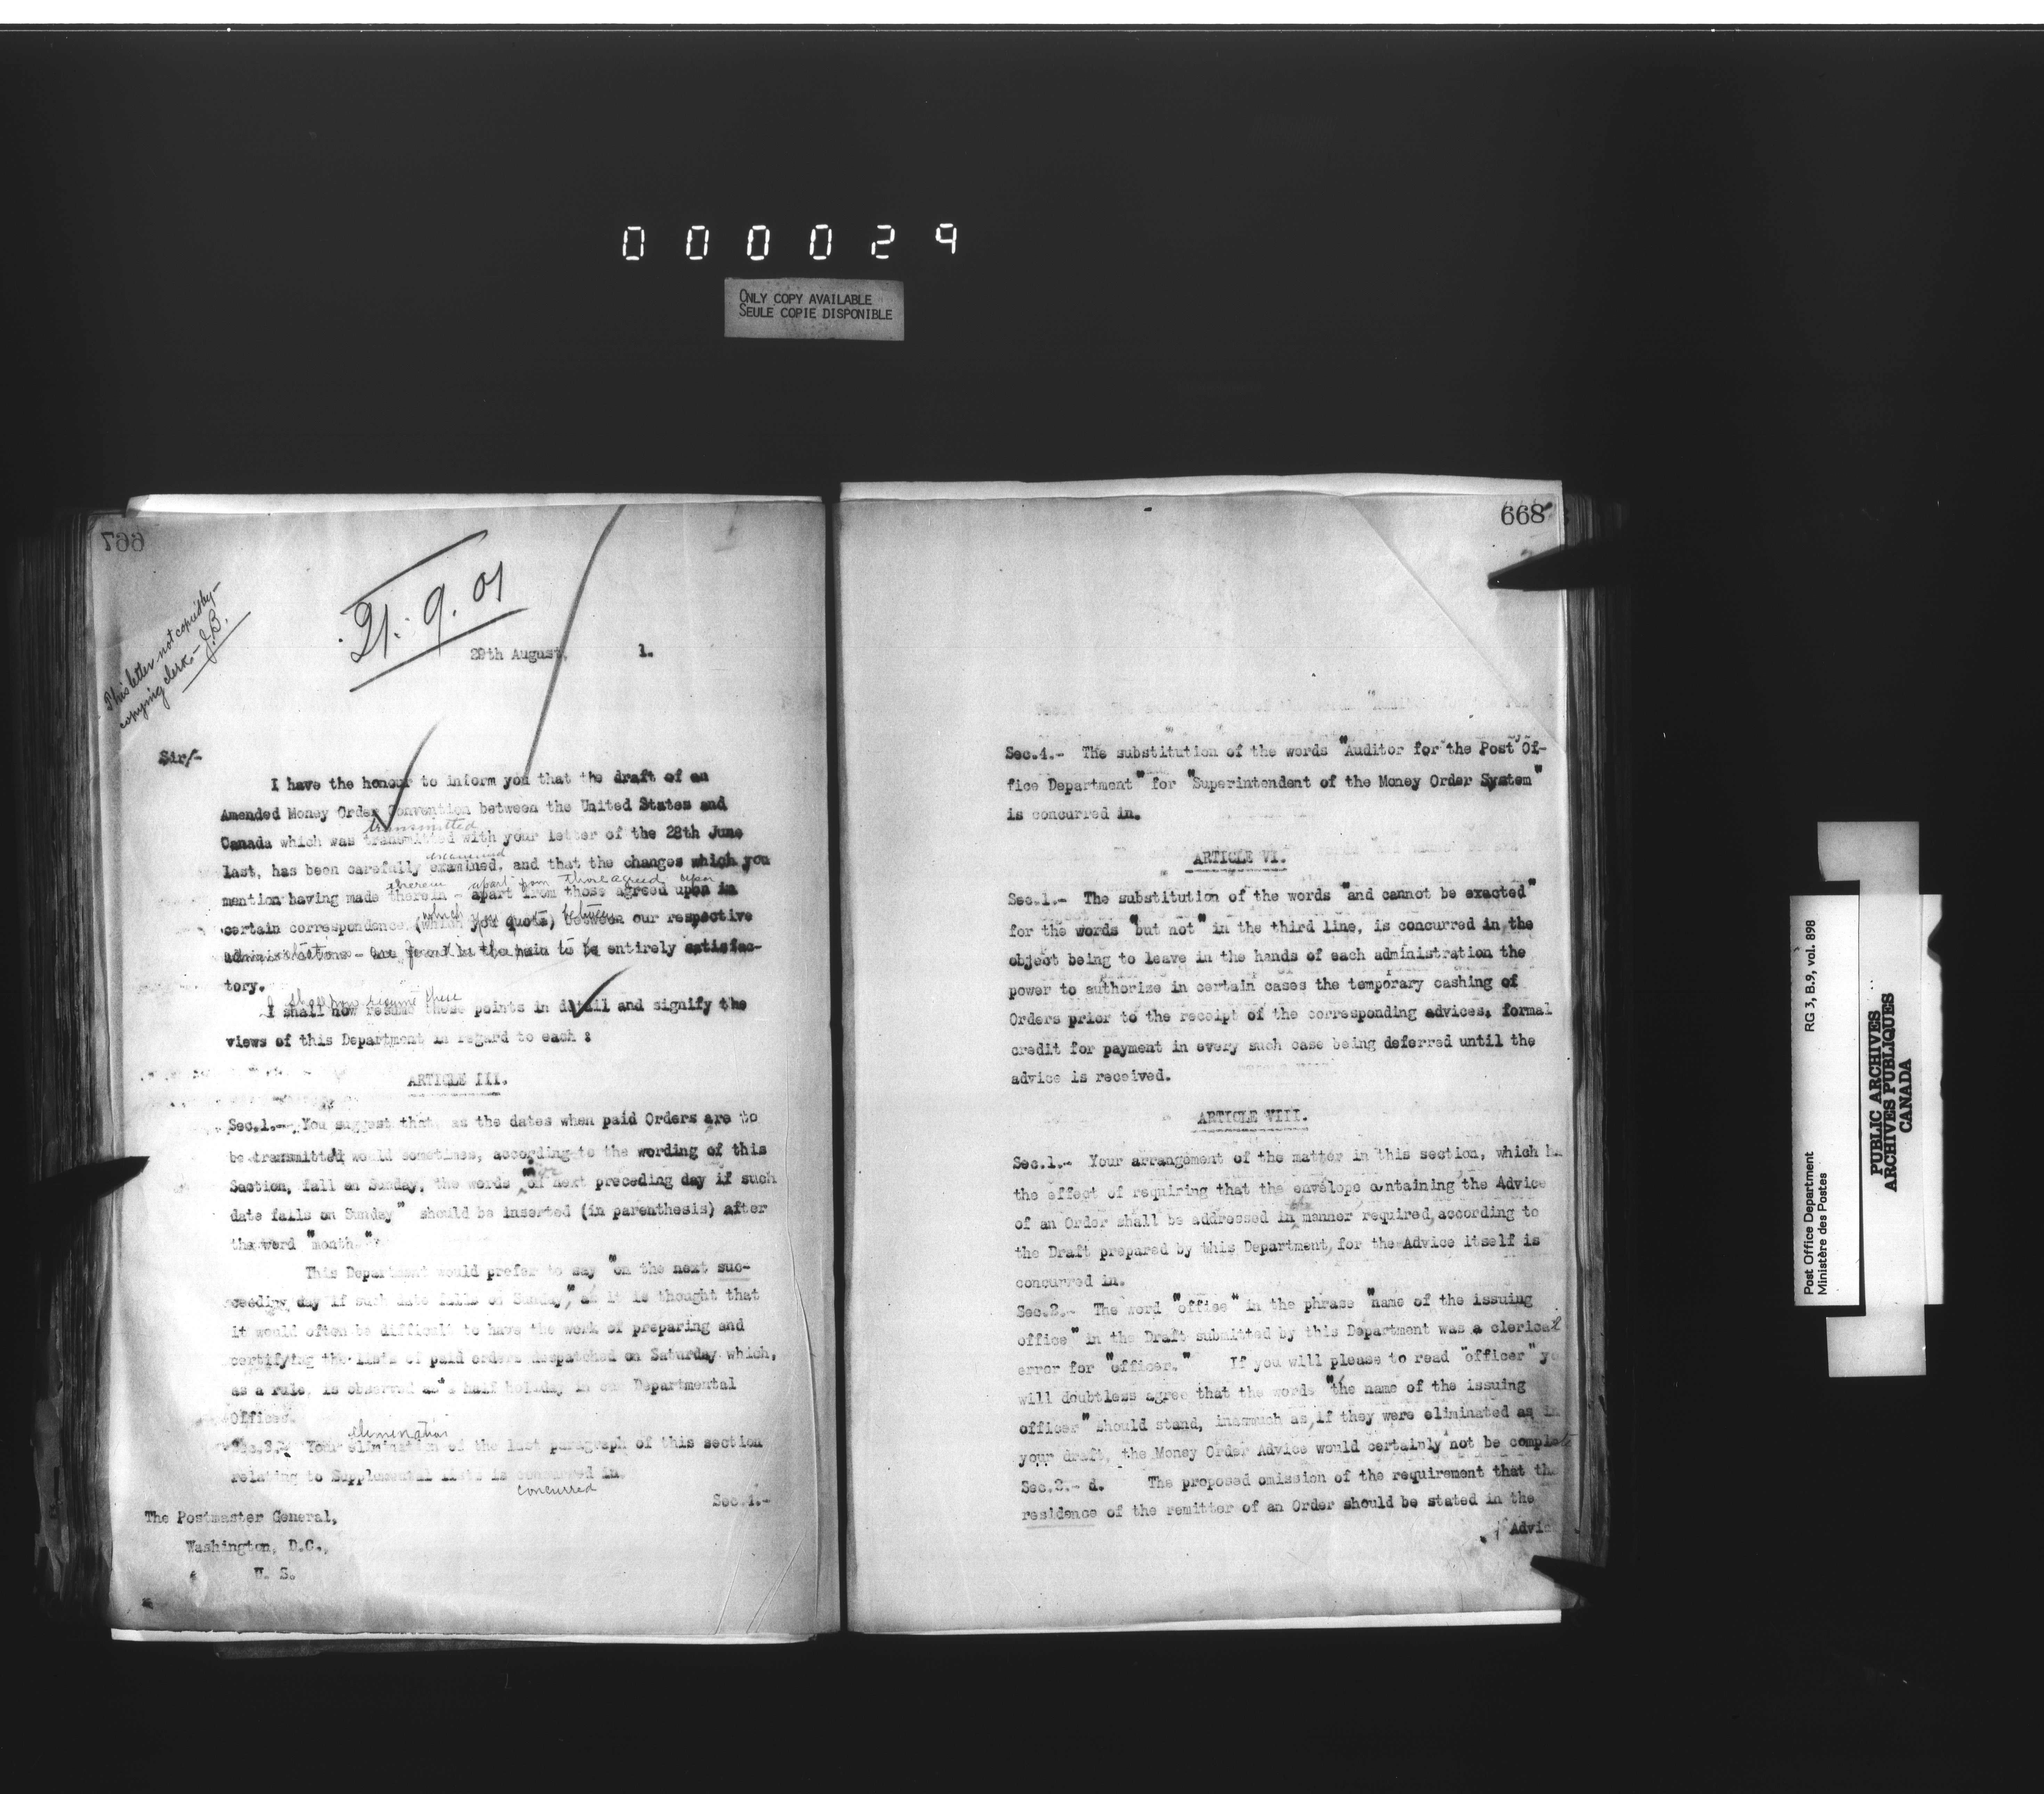 000029
ONLY COPY AVAILABLE
SEULE COPIE DISPONIBLE
667
This letter not copied by
copying clerk - J.B.
21. 9. 01
29th August, 1.
Sir/-
I have the honour to inform you that the draft of an
Amended Money Order Convention between the United States and
transmitted
Canada which was transmitted with your letter of the 28th June
examined
last, has been carefully examined, and that the changes which you
therein apart from those agreed upon
mention having made therein - apart from those agreed upon in
which you quote between
certain correspondence (which you quote) between our respective
administrations - are found in the main to be entirely satisfac-
tory.
I shall now resume these
I shall now resume these points in detail and signify the
views of this Department in regard to each :
ARTICLE III.
Sec.1.- You suggest that, as the dates when paid Orders are to
be transmitted would sometimes, according to the wording of this
Section, fall on Sunday, the words "on next preceding day if such
date falls on Sunday" should be inserted (in parenthesis) after
the word "month."
This Department would prefer to say "on the next suc-
ceeding day if such date falls on Sunday," as it is thought that
it would often be difficult to have the work of preparing and
certifying the lists of paid orders despatched on Saturday which,
as a rule, is observed as a half holiday in our Departmental
Offices.
elimination
Your elimination of the last paragraph of this section
relating to Supplemental lists is concurred in.
concurred
Sec.4.-
The Postmaster General,
Washington, D.C.,
U. S.
668
Sec.4.- The substitution of the words "Auditor for the Post Of-
fice Department" for "Superintendent of the Money Order System"
is concurred in.
ARTICLE VI.
Sec.1.- The substitution of the words "and cannot be exacted"
for the words "but not" in the third line, is concurred in, the
object being to leave in the hands of each administration the
power to authorize in certain cases the temporary cashing of
Orders prior to the receipt of the corresponding advices, formal
credit for payment in every such case being deferred until the
advice is received.
ARTICLE VIII.
Sec.1.- Your arrangement of the matter in this section, which
the effect of requiring that the envelope containing the Advice
of an Order shall be addressed in manner required, according to
the Draft prepared by this Department, for the Advice itself is
concurred in.
Sec.2.- The word "office" in the phrase "name of the issuing
office" in the Draft submitted by this Department was a clerical
error for "officer." If you will please to read "officer" yo
will doubtless agree that the words "the name of the issuing
officer" should stand, inasmuch as, if they were eliminated as in
your draft, the Money Order Advice would certainly not be complete
Sec.2.- d. The proposed omission of the requirement that the
residence of the remitter of an Order should be stated in the
Advic
Post Office Department RG 3, B.9, vol. 898
Ministère des Postes
PUBLIC ARCHIVES
ARCHIVES PUBLIQUES
CANADA